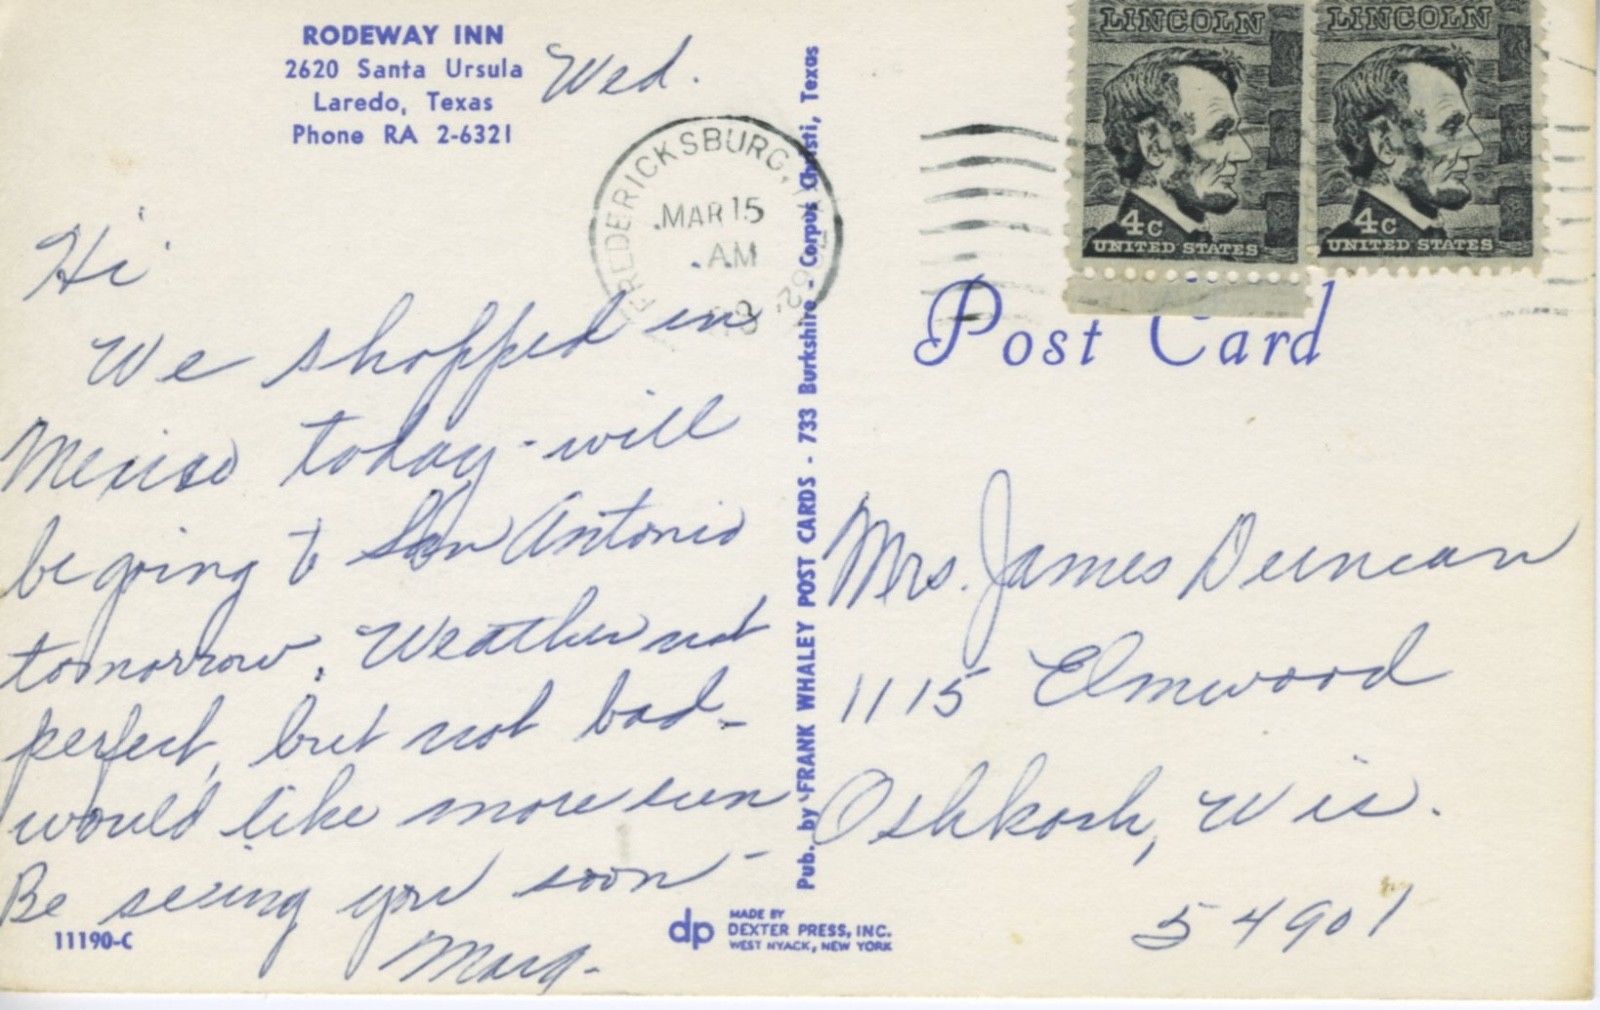 RODEWAY INN
2620 Santa Ursula
Laredo, Texas
Phone RA 2-6321
Wed.
Hi
We shopped in
Mexico today - will
be going to San Antonio
tomorrow. Weather not
perfect, but not bad -
would like more sun
Be seeing you soon -
Marg.
11190-C
FREDERICKSBURG, T
MAR 15
AM
Pub. by FRANK WHALEY POST CARDS - 733 Burkshire - Corpus Christi, Texas
dp
MADE BY
DEXTER PRESS, INC.
WEST NYACK, NEW YORK
LINCOLN
4c
UNITED STATES
LINCOLN
4c
UNITED STATES
Post Card
Mrs. James Duncan
1115 Elmwood
Oshkosh, Wis.
54901